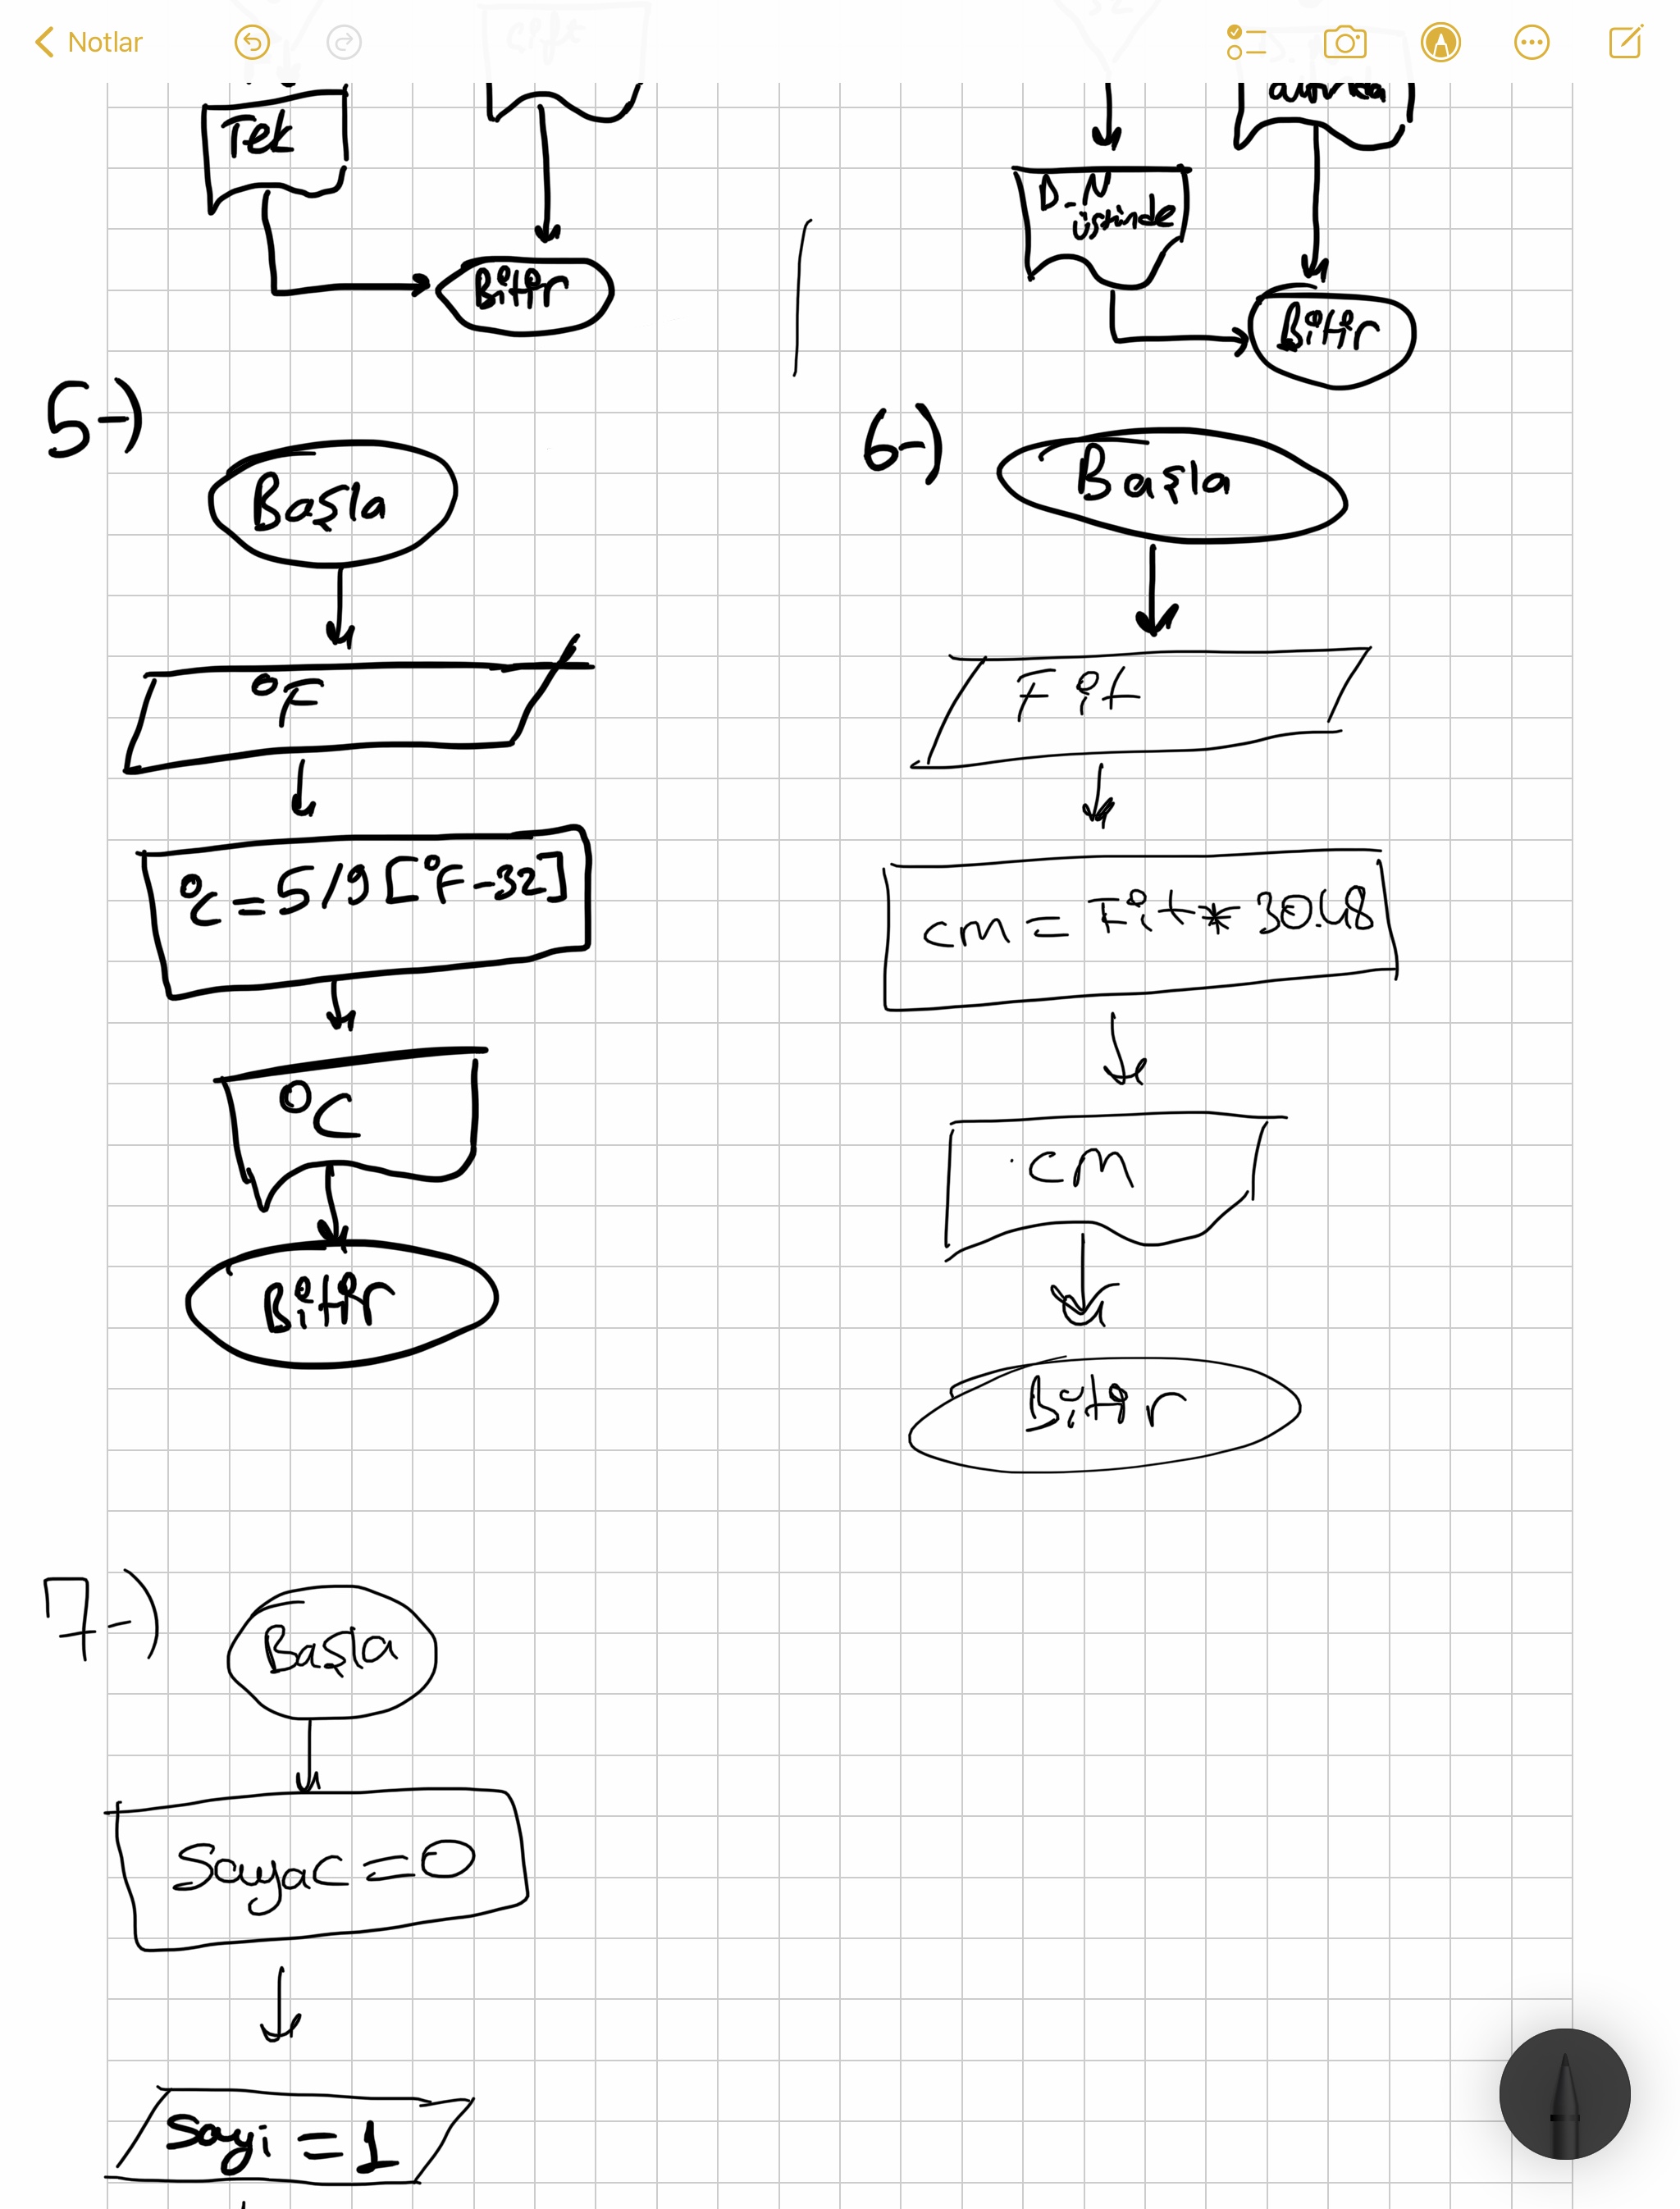 Notlar
Tek
Bitir
D.N
üstünde
Bitir
5-)
Başla
°F
°C = 5/9 [°F-32]
°C
Bitir
6-)
Başla
Fit
cm = Fit * 30.48
cm
Bitir
7-)
Başla
Sayac = 0
Sayi = 1